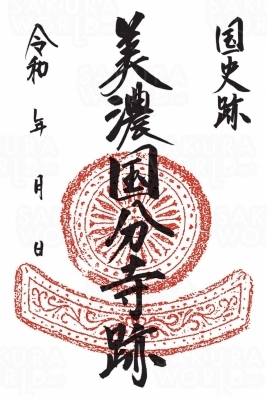 国史跡
美濃国分寺跡
令和 年 月 日